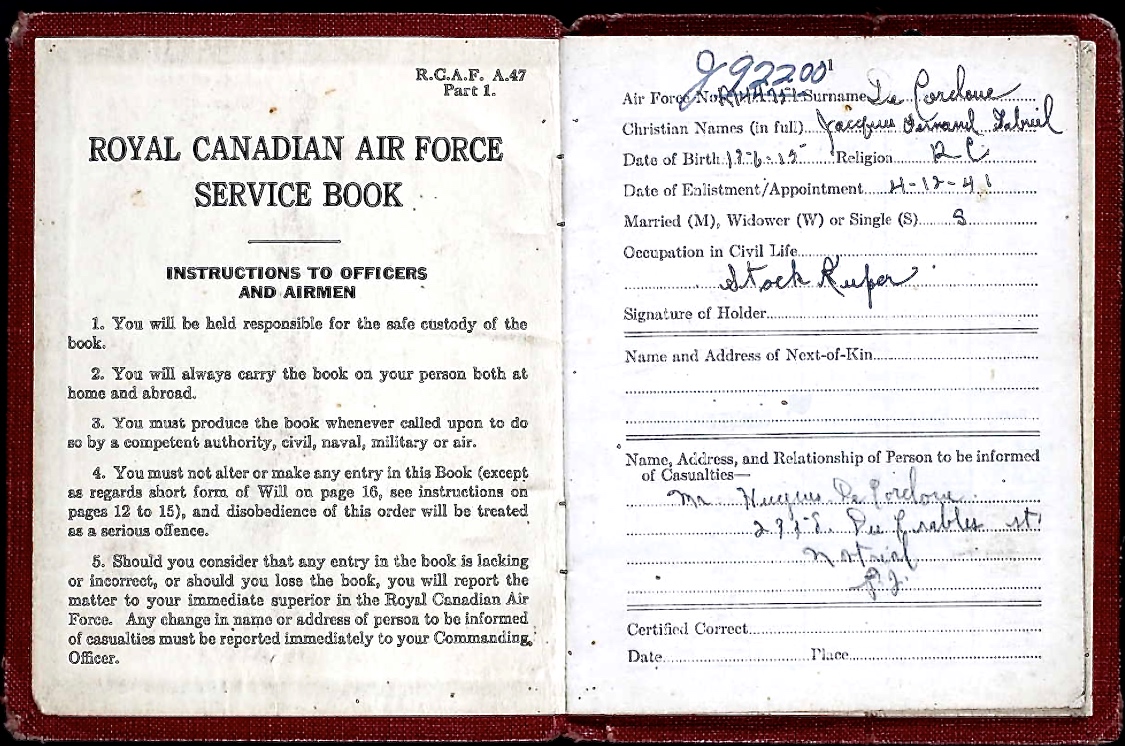 R.C.A.F. A.47
Part 1.
ROYAL CANADIAN AIR FORCE
SERVICE BOOK
INSTRUCTIONS TO OFFICERS
AND AIRMEN
1. You will be held responsible for the safe custody of the
book.
2. You will always carry the book on your person both at
home and abroad.
3. You must produce the book whenever called upon to do
so by a competent authority, civil, naval, military or air.
4. You must not alter or make any entry in this Book (except
as regards short form of Will on page 16, see instructions on
pages 12 to 15), and disobedience of this order will be treated
as a serious offence.
5. Should you consider that any entry in the book is lacking
or incorrect, or should you lose the book, you will report the
matter to your immediate superior in the Royal Canadian Air
Force. Any change in name or address of person to be informed
of casualties must be reported immediately to your Commanding
Officer.
1
J92200
Air Force No. Surname De
Christian Names (in full) Jacques Fernand Gabriel
Date of Birth Religion R C
Date of Enlistment/Appointment 4-12-41
Married (M), Widower (W) or Single (S) S
Occupation in Civil Life
Stock Keeper
Signature of Holder
Name and Address of Next-of-Kin
Name, Address, and Relationship of Person to be informed
of Casualties—
Mr De
St
Certified Correct
Date Place